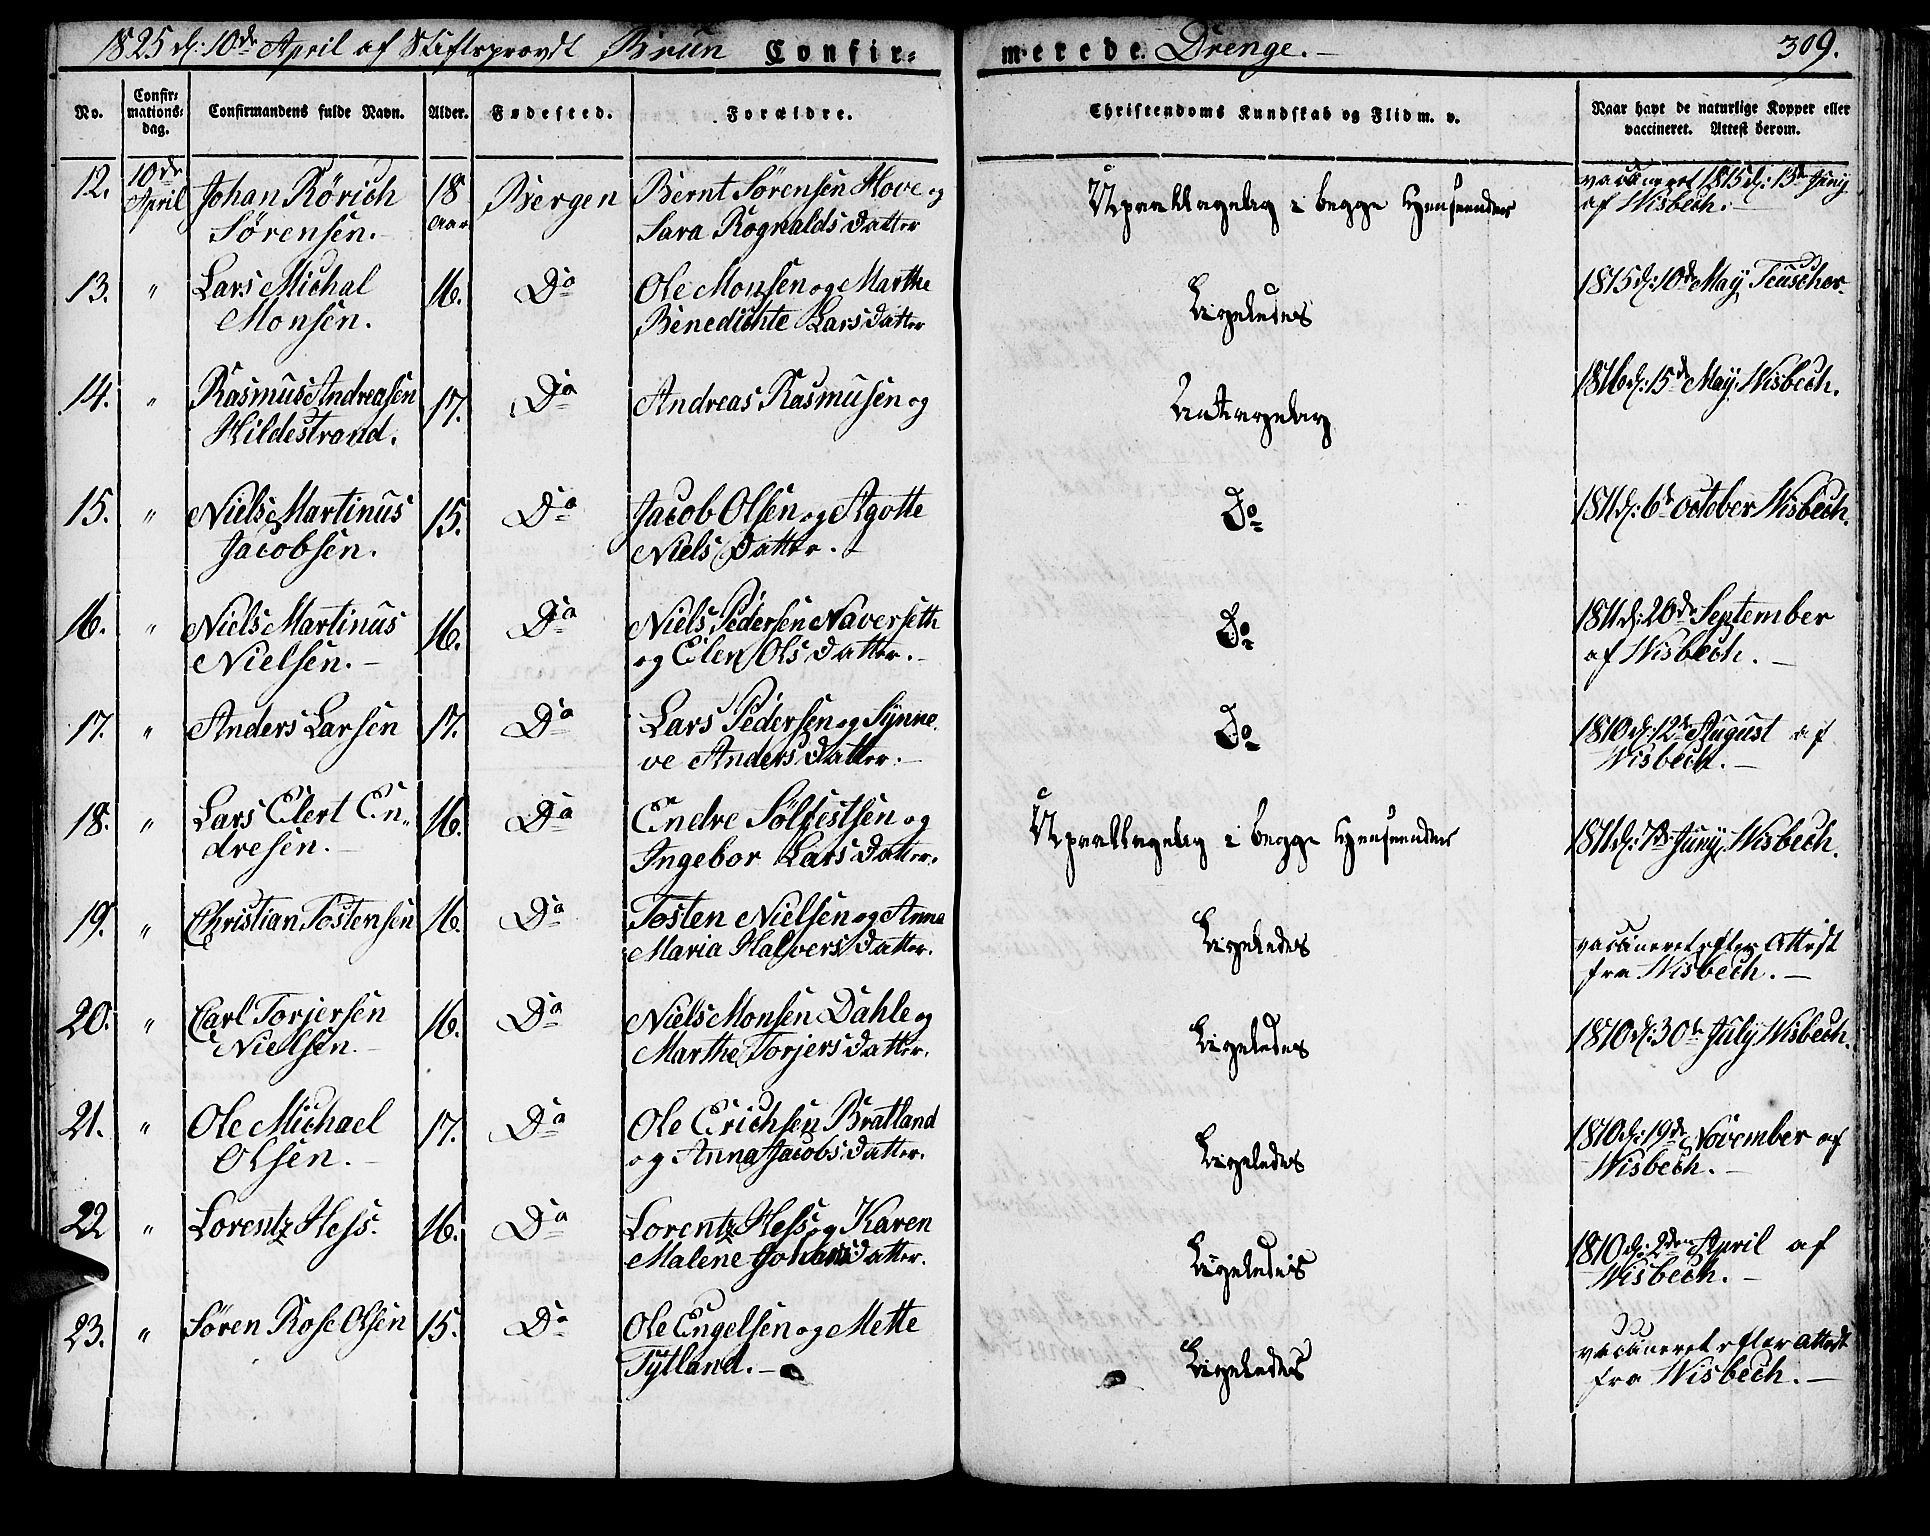 1825 d: 10de April af Stiftsprovst Brun Confir=
merede Drenge. 309.
No. Confirmationsdag. Confirmandens fulde Navn. Alder. Fødested. Forældre. Christendoms Kundskab og Flid m. v. Naar havt de naturlige Kopper eller vaccineret. Attest derom.
12. 10de April Johan Rörich 18 Aar Bergen Bernt Sörensen Hove og Upaaklagelig i begge Henseender vaccineret 1815 d: 13de Juny
Sörensen. Sara Rognealds Datter af Wisbech.
13. " Lars Michal 16. Do Ole Monsen og Marthe Ligeledes 1815 d: 10de May Teuscher
Monsen. Benedichte Lars Datter
14. " Rasmus Andreasen 17. Do Andreas Rasmusen og Antagelig 1816 d: 15de May. Wisbech.
Hildestrand.
15. " Niels Martinus 15. Do Jacob Olsen og Agotte Do 1811 d: 6te october Wisbech.
Jacobsen. Niels Datter.
16. " Niels Martinus 16. Do Niels Pedersen Naverseth Do 1811 d: 20de September
Nielsen. og Elen Ols Datter. af Wisbech.
17. " Anders Larsen 17. Do Lars Pedersen og Synne Do 1810 d: 12te August af
ve Anders Datter. Wisbech.
18. " Lars Elert En" 16. Do Endre Sölfestsen og Upaaklagelig i begge Henseender 1811 d: 7de Juny. Wisbech.
dresen. Ingebor Lars Datter.
19. " Christian Tostensen 16. Do Tosten Nielsen og Anne Ligeledes vaccineret efter Attest
Maria Halvers Datter. fra Wisbech.
20. " Carl Torjersen 16. Do Niels Monsen Dahle og Ligeledes 1810 d: 30te July Wisbech.
Nielsen. Marthe Torjers Datter.
21. " Ole Michael 17. Do Ole Erichsen Bratland Ligeledes 1810 d: 19de November af
Olsen. og Anna Jacobs Datter. Wisbech.
22 " Lorentz Hess. 16. Do Lorentz Hess og Karen Ligeledes 1810 d: 2den April af
Malene Johans Datter. Wisbech.
23. " Sören Rose Olsen 15. Do Ole Engelsen og Mette Ligeledes vaccineret efter attest
Tytland. fra Wisbech.